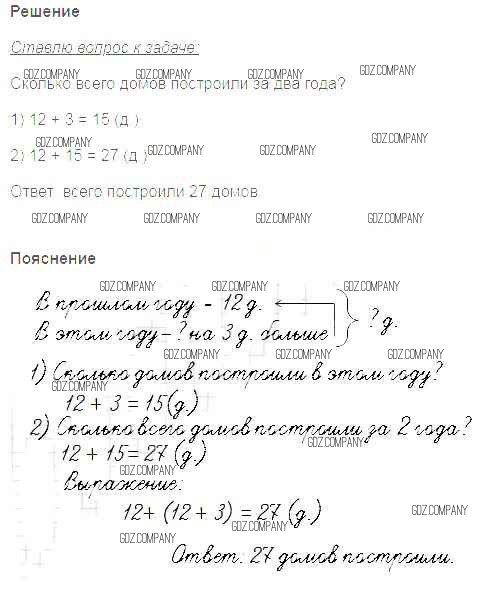 Решение
Ставлю вопрос к задаче:
GDZ.COMPANY GDZ.COMPANY GDZ.COMPANY GDZ.COMPANY
Сколько всего домов построили за два года?
1) 12 + 3 = 15 (д.)
GDZ.COMPANY GDZ.COMPANY GDZ.COMPANY GDZ.COMPANY
2) 12 + 15 = 27 (д.)
Ответ всего построили 27 домов
GDZ.COMPANY GDZ.COMPANY GDZ.COMPANY GDZ.COMPANY
Пояснение
GDZ.COMPANY GDZ.COMPANY GDZ.COMPANY
В прошлом году - 12 д.
В этом году - ? на 3 д. больше
? д.
GDZ.COMPANY GDZ.COMPANY GDZ.COMPANY
1) Сколько домов построили в этом году?
GDZ.COMPANY
12 + 3 = 15 (д.)
2) Сколько всего домов построили за 2 года?
GDZ.COMPANY
12 + 15 = 27 (д.)
GDZ.COMPANY
Выражение:
12 + (12 + 3) = 27 (д.)
GDZ.COMPANY GDZ.COMPANY
GDZ.COMPANY
Ответ: 27 домов построили.